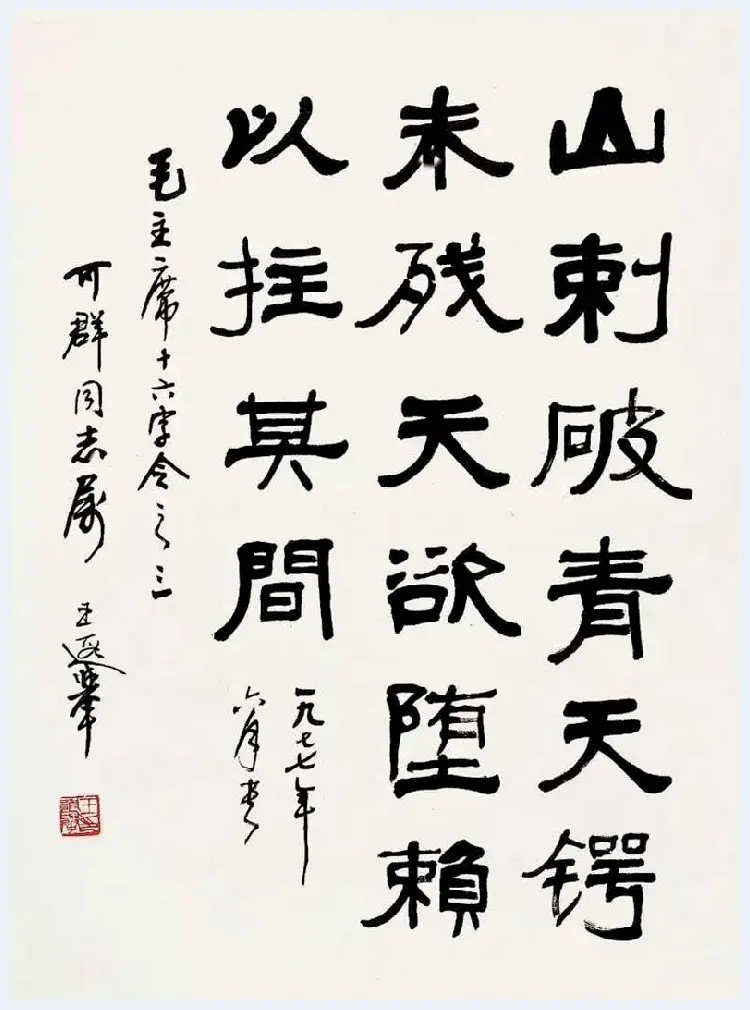 山刺破青天锷
未残天欲堕赖
以拄其間
一九七七年
六月书
毛主席十六字令之三
可群同志属 王遐舉